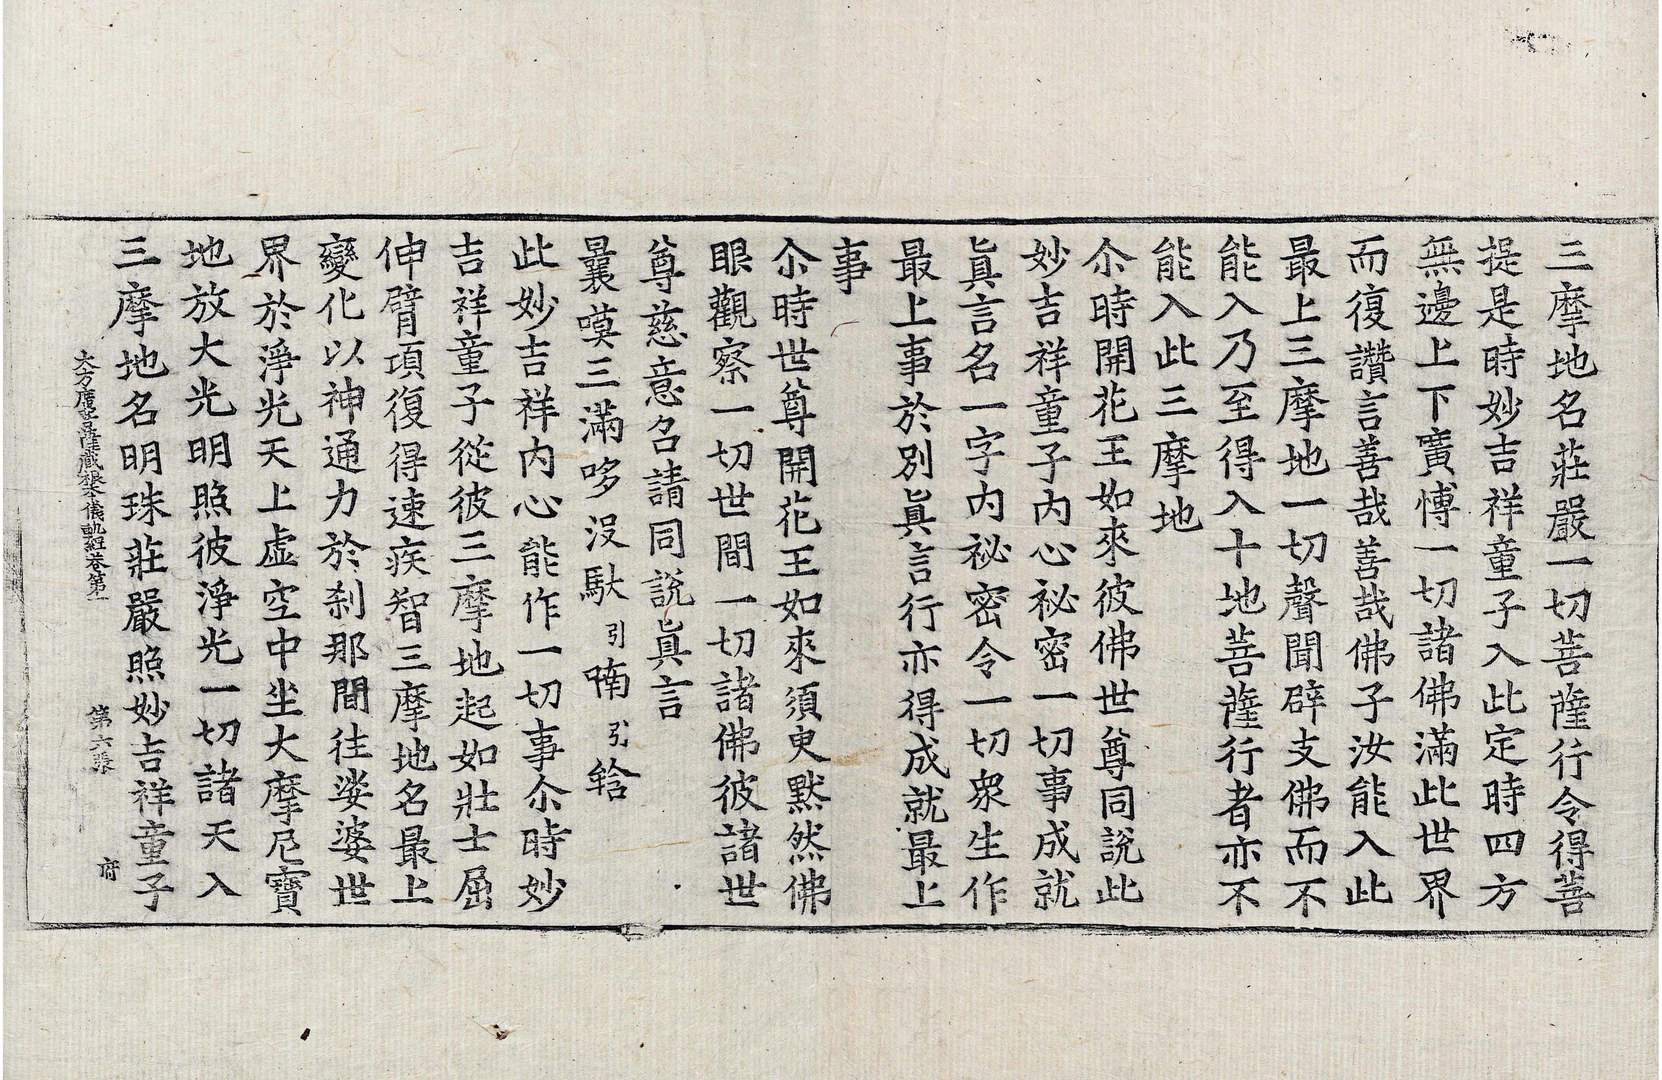 三摩地名莊嚴一切菩薩行令得菩
提是時妙吉祥童子入此定時四方
無邊上下廣愽一切諸佛滿此世界
而復讚言善哉善哉佛子汝能入此
最上三摩地一切聲聞辟支佛而不
能入乃至得入十地菩薩行者亦不
能入此三摩地
尒時開花王如來彼佛世尊同說此
妙吉祥童子內心祕密一切事成就
眞言名一字內祕密令一切衆生作
最上事於別眞言行亦得成就最上
事
尒時世尊開花王如來須臾黙然佛
眼觀察一切世間一切諸佛彼諸世
尊慈意名請同說眞言
曩謨三滿哆沒馱引喃引䤴
此妙吉祥內心能作一切事尒時妙
吉祥童子從彼三摩地起如壯士屈
伸臂項復得速疾智三摩地名最上
變化以神通力於刹那間往娑婆世
界於淨光天上虛空中坐大摩尼寶
地放大光明照彼淨光一切諸天入
三摩地名明珠莊嚴照妙吉祥童子
大方廣菩薩藏根本儀軌經卷第一 第六張 府